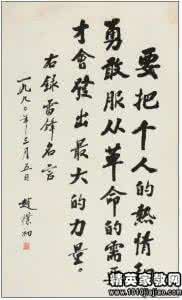 要把个人的熱情和
勇敢服从革命的需要
才會發出最大的力量。
右錄雷锋名言
一九九〇年三月五日
趙樸初
精英家教网
www.1010jiajiao.com